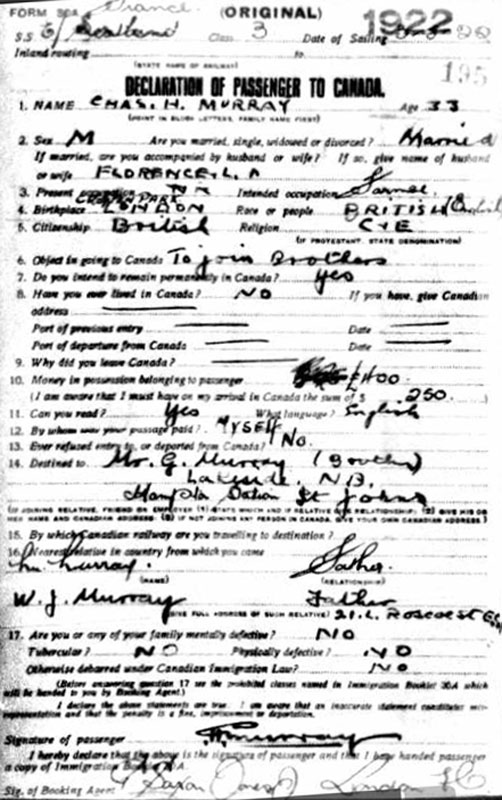 FORM 30A (ORIGINAL) 1922
S.S. of Scotland Class 3 Date of Sailing
Inland routing to
(STATE NAME OF RAILWAY) 195
DECLARATION OF PASSENGER TO CANADA.
1. NAME CHAS. H. MURRAY Age 33
(PRINT IN BLOCK LETTERS, FAMILY NAME FIRST)
2. Sex M Are you married, single, widowed or divorced? Married
If married, are you accompanied by husband or wife? If so, give name of husband
or wife FLORENCE. L. A
3. Present occupation Intended occupation Farmer
4. Birthplace LONDON Race or people BRITISH
5. Citizenship British Religion C of E
(IF PROTESTANT, STATE DENOMINATION)
6. Object in going to Canada To join Brothers
7. Do you intend to remain permanently in Canada? yes
8. Have you ever lived in Canada? NO If you have, give Canadian
address
Port of previous entry Date
Port of departure from Canada Date
9. Why did you leave Canada?
10. Money in possession belonging to passenger
(I am aware that I must have on my arrival in Canada the sum of $ 250.
11. Can you read? Yes What language? English
12. By whom was your passage paid? MYSELF
13. Ever refused entry to, or deported from Canada? No.
14. Destined to Mr. G. Murray (Brother)
Lakeside, N.B.
Hampton Station St Johns
(IF JOINING RELATIVE, FRIEND OR EMPLOYER (1) STATE WHICH AND IF RELATIVE GIVE RELATIONSHIP; (2) GIVE HIS OR
HER NAME AND CANADIAN ADDRESS; (3) IF NOT JOINING ANY PERSON IN CANADA, GIVE YOUR OWN CANADIAN ADDRESS)
15. By which Canadian railway are you travelling to destination?
16. Nearest relative in country from which you came
Murray. Father
(NAME) (RELATIONSHIP)
W. J. Murray Father
(GIVE FULL ADDRESS OF SUCH RELATIVE) 21.
17. Are you or any of your family mentally defective? NO
Tubercular? NO Physically defective? NO
Otherwise debarred under Canadian Immigration Law? No
(Before answering question 17 see the prohibited classes named in Immigration Booklet 30A which
will be handed to you by Booking Agent.)
I declare the above statements are true. I am aware that an inaccurate statement constitutes mis-
representation and that the penalty is a fine, imprisonment or deportation.
Signature of passenger Murray
I hereby declare that the above is the signature of passenger and that I have handed passenger
a copy of Immigration Booklet 30A.
Sig. of Booking Agent London